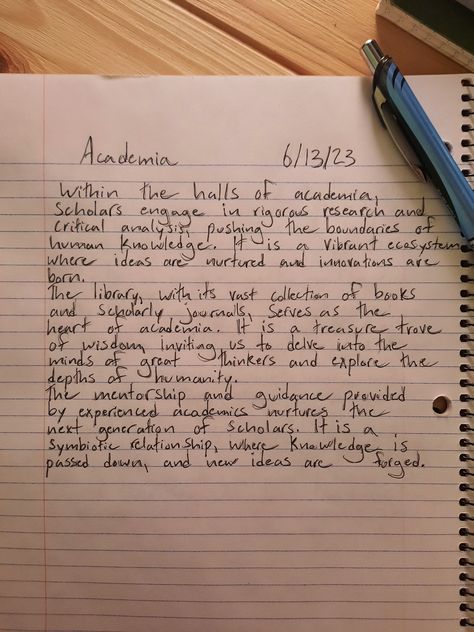 Academia 6/13/23
Within the halls of academia,
Scholars engage in rigorous research and
critical analysis, pushing the boundaries of
human knowledge. It is a vibrant ecosystem
where ideas are nurtured and innovations are
born.
The library, with its vast collection of books
and scholarly journals, serves as the
heart of academia. It is a treasure trove
of wisdom, inviting us to delve into the
minds of great thinkers and explore the
depths of humanity.
The mentorship and guidance provided
by experienced academics nurtures the
next generation of scholars. It is a
symbiotic relationship, where knowledge is
passed down, and new ideas are forged.